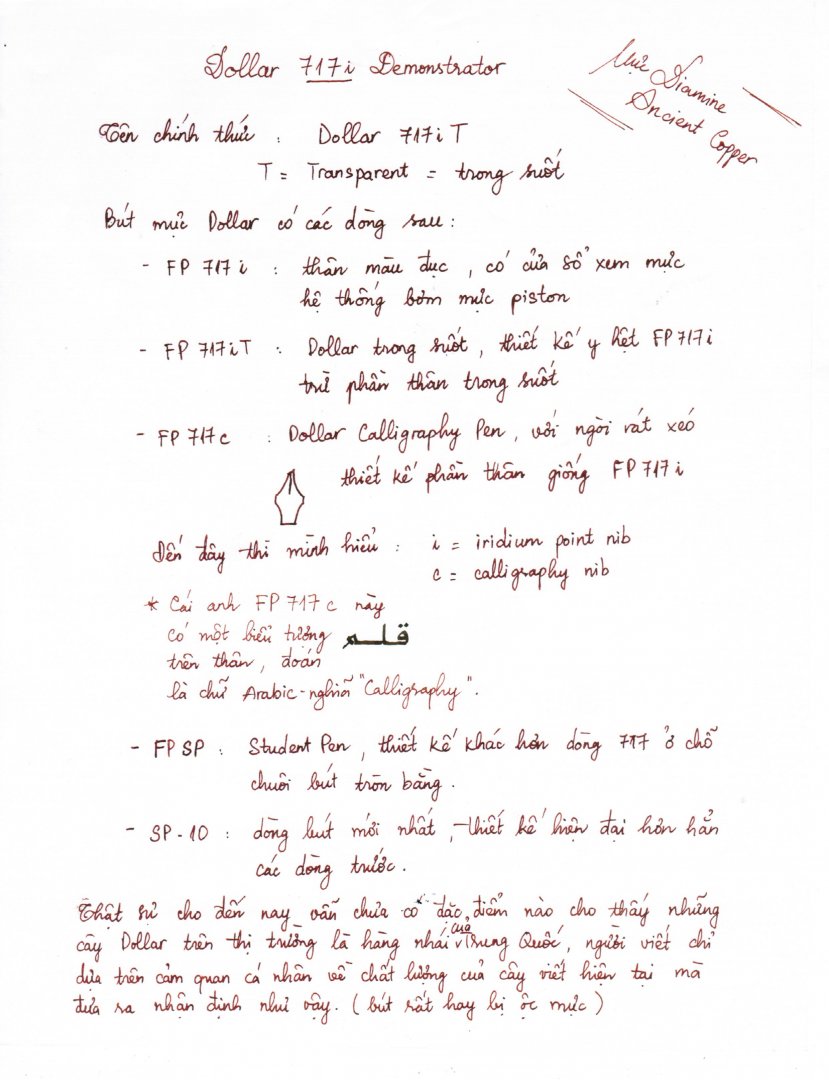 Dollar 717i Demonstrator
Mực Diamine
Ancient Copper
Tên chính thức : Dollar 717i T
T = Transparent = trong suốt
Bút mực Dollar có các dòng sau :
- FP 717 i : thân màu đục , có cửa sổ xem mực
hệ thống bơm mực piston
- FP 717iT : Dollar trong suốt , thiết kế y hệt FP717i
trừ phần thân trong suốt
- FP 717c : Dollar Calligraphy Pen , với ngòi vát xéo
thiết kế phần thân giống FP 717 i
Đến đây thì mình hiểu : i = iridium point nib
c = calligraphy nib
* Cái anh FP 717 c này
có một biểu tượng قلم
trên thân , đoán
là chữ Arabic - nghĩa "Calligraphy".
- FP SP : Student Pen , thiết kế khác hơn dòng 717 ở chỗ
chuôi bút tròn bằng .
- SP - 10 : dòng bút mới nhất , thiết kế hiện đại hơn hẳn
các dòng trước .
Thật sự cho đến nay vẫn chưa có đặc điểm nào cho thấy những
cây Dollar trên thị trường là hàng nhái của Trung Quốc, người viết chỉ
dựa trên cảm quan cá nhân về chất lượng của cây viết hiện tại mà
đưa ra nhận định như vậy. ( bút rất hay bị ộc mực )